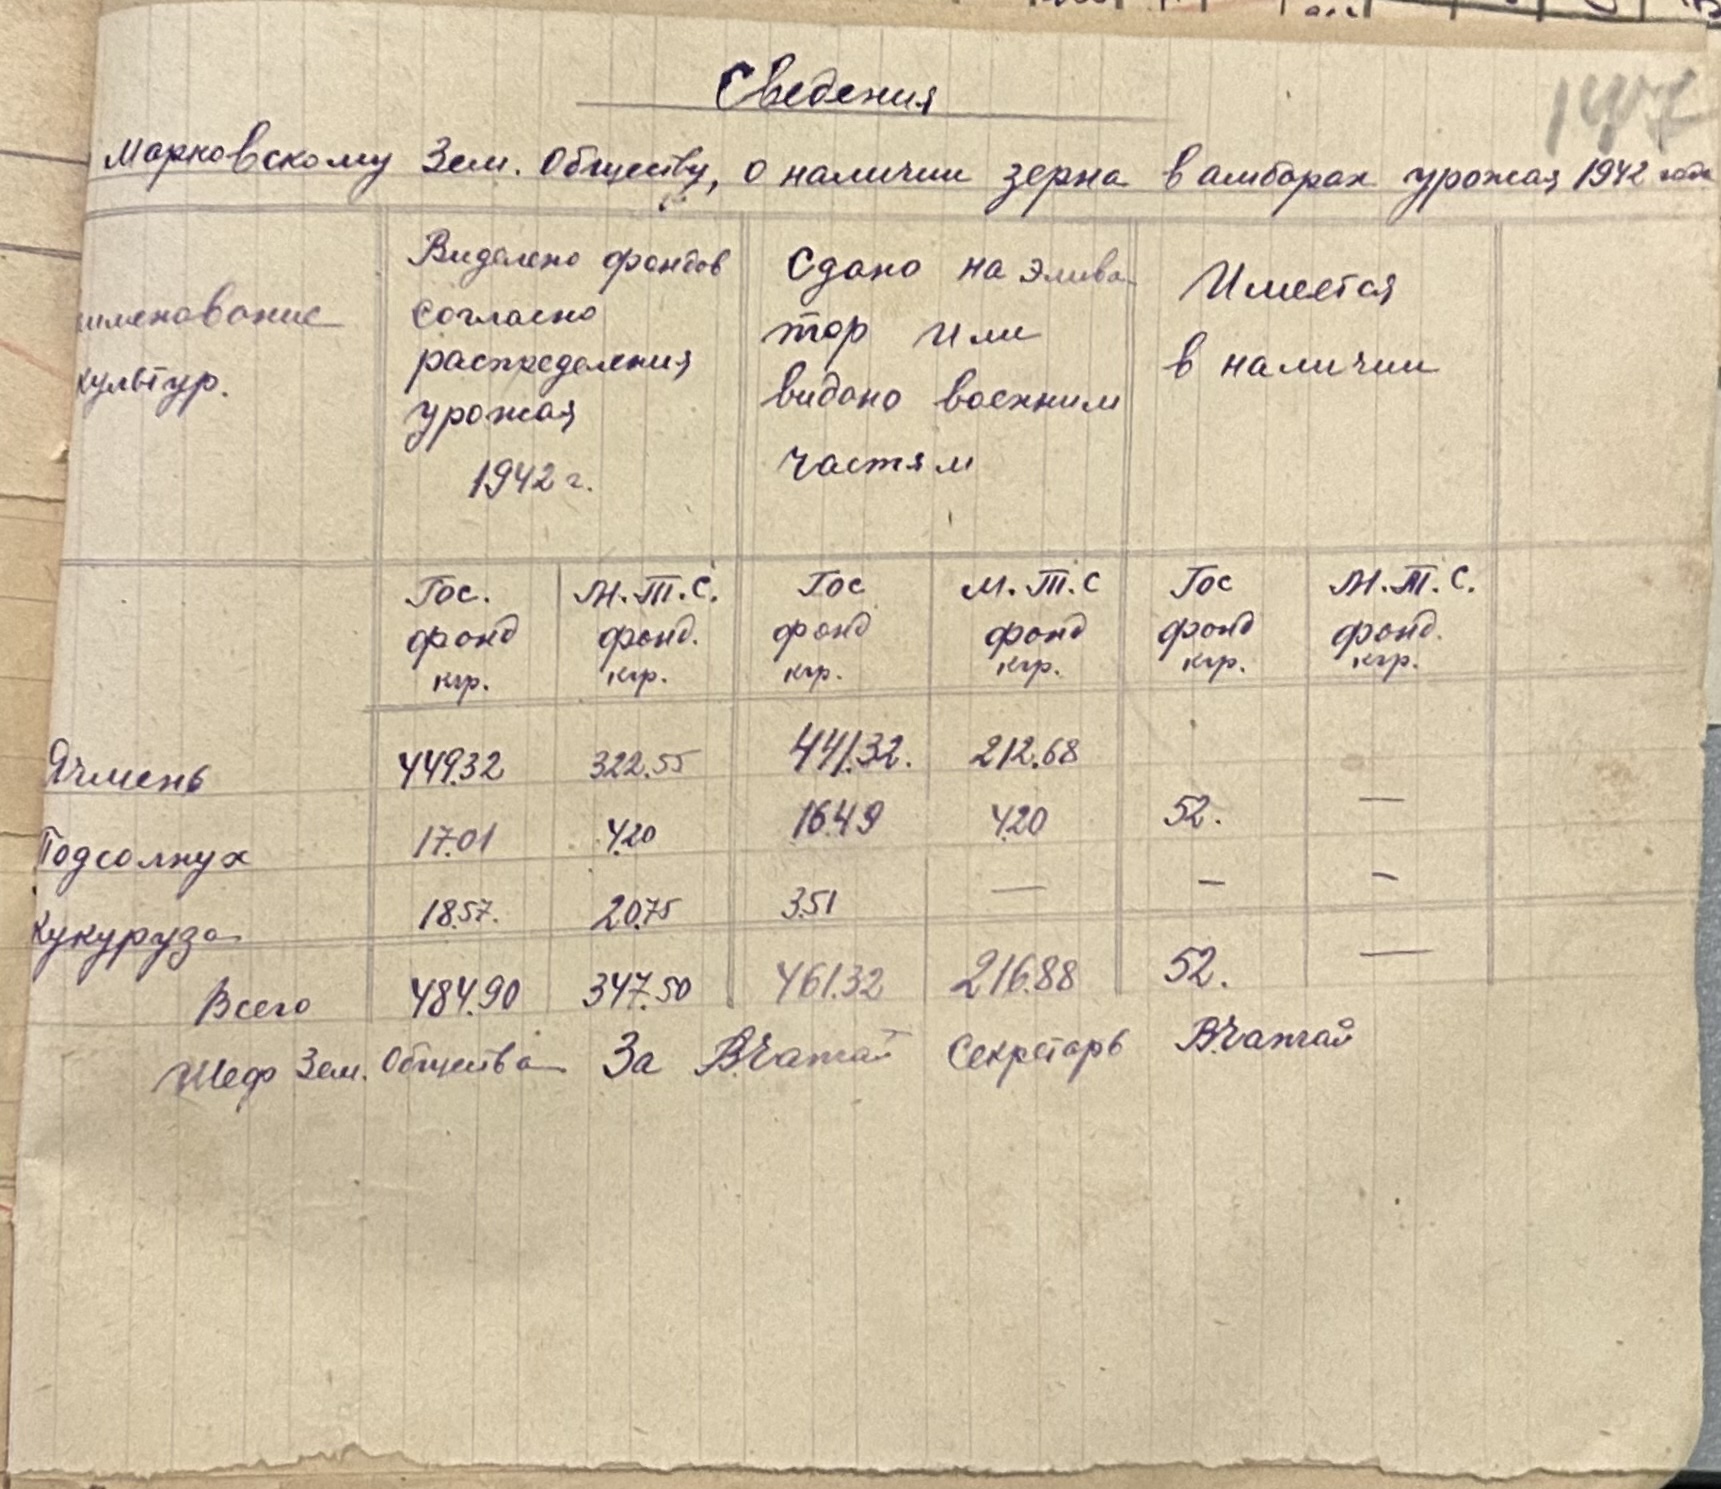 147
Сведения
Марковскому Зем. Обществу, о наличии зерна в амбарах урожая 1942 года
именование
культур.
Виделено фондов
согласно
распределения
урожая
1942 г.
Сдано на элива
тор или
видано военним
частям
Имеется
в наличии
Гос. фонд кгр.
М.Т.С. фонд. кгр.
Гос фонд кгр.
М.Т.С фонд кгр.
Гос фонд кгр.
М.Т.С. фонд. кгр.
Ячмень 449.32 322.55 441.32. 212.68
Подсолнух 17.01 4.20 16.49 4.20 52. —
Кукуруза 18.57. 20.75 3.51 — – –
Всего 484.90 347.50 461.32 216.88 52. —
Шеф Зем. Общества За Секретарь